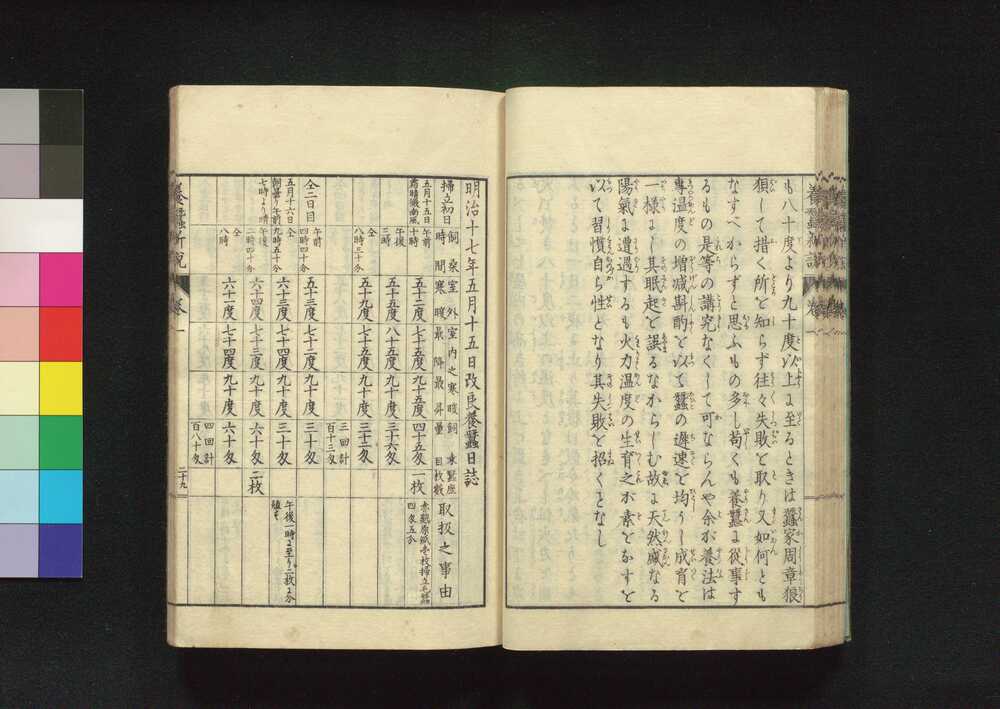 も八十度より九十度以上に至るときは蠶家周章狼
狽して措く所を知らず往々失敗を取り又如何とも
なすべからずと思ふもの多し苟くも養蠶に従事す
るもの是等の講究なくして可ならんや余が養法は
專温度の増减斟酌を以て蠶の遲速を均うし成育を
一様にし其眠起を誤るなからしむ故に天然感なる
陽氣に遭遇するも火力温度の生育之が素をなすを
以て習慣自ら性となり其失敗を招くとなし
明治十七年五月十五日改良養蠶日誌
掃立初日
飼桑時間
室外寒暖
室内之寒暖
最降
最昇
飼桑量目
蠶座枚数
取扱之事由
五月十五日
霽晴微南風
午前十時
五十二度
七十五度
九十五度
四十五匁
一枚
四匁五分
午後三時
五十五度
八十五度
九十度
三十六匁
仝八時三十分
五十九度
七十五度
九十度
三十二匁
三回計
百十三匁
仝二日目
午前四時四十分
五十三度
七十一度
九十度
三十匁
五月十六日
朝曇り午前七時より晴
仝九時五十分
六十三度
七十四度
九十度
三十匁
午後二時四十分
六十四度
七十三度
九十度
六十匁
二枚
午後一時に至り二枚に分
仝八時
六十一度
七十四度
九十度
六十匁
四回計
百八十匁
養蠶新説
卷一
二十九